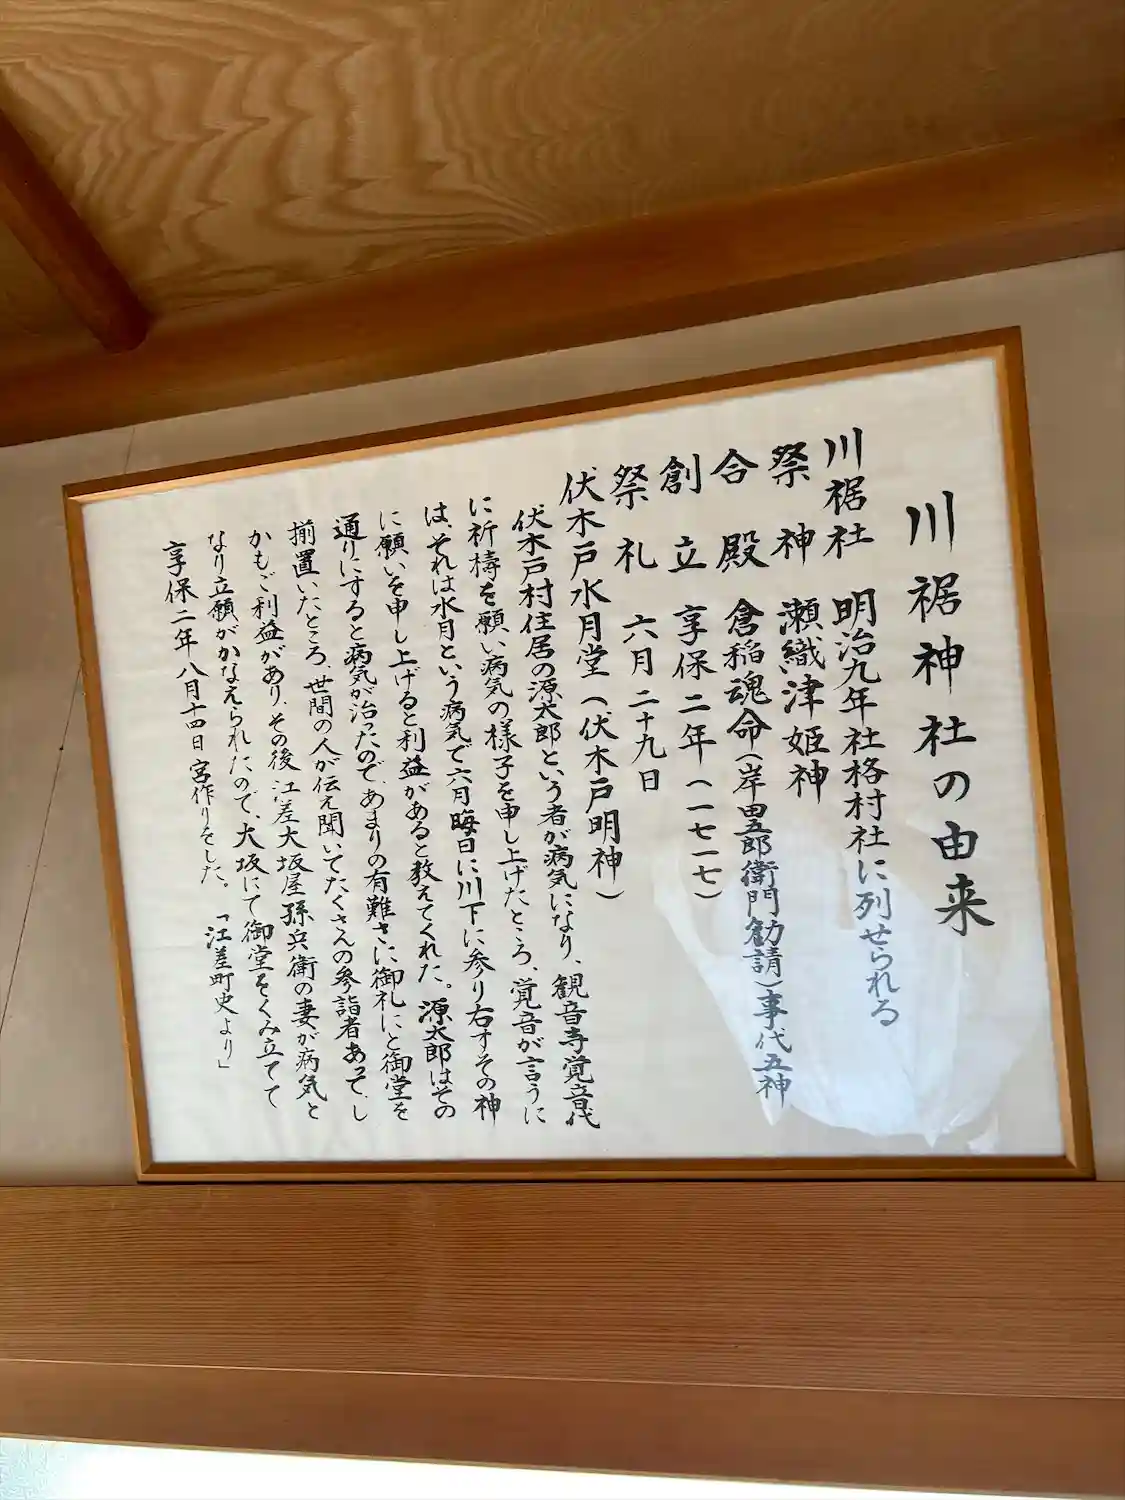 川裾神社の由来
川裾社 明治九年社格村社に列せられる
祭神 瀬織津姫神
合殿 倉稲魂命(岸田五郎衛門勧請)事代五神
創立 享保二年(一七一七)
祭礼 六月二十九日
伏木戸水月堂(伏木戸明神)
伏木戸村住居の源太郎という者が病気になり、観音寺覚音代
に祈梼を願い病気の様子を申し上げたところ、覚音が言うに
は、それは水月という病気で六月晦日に川下に参り右すその神
に願いを申し上げると利益があると教えてくれた。源太郎はその
通りにすると病気が治ったので、あまりの有難さに御礼にと御堂を
揃置いたところ、世間の人が伝え聞いてたくさんの参詣者あって、し
かもご利益があり、その後江差大坂屋孫兵衛の妻が病気と
なり立願がかなえられたので、大坂にて御堂をくみ立てて
享保二年八月十四日宮作りをした。 「江差町史より」